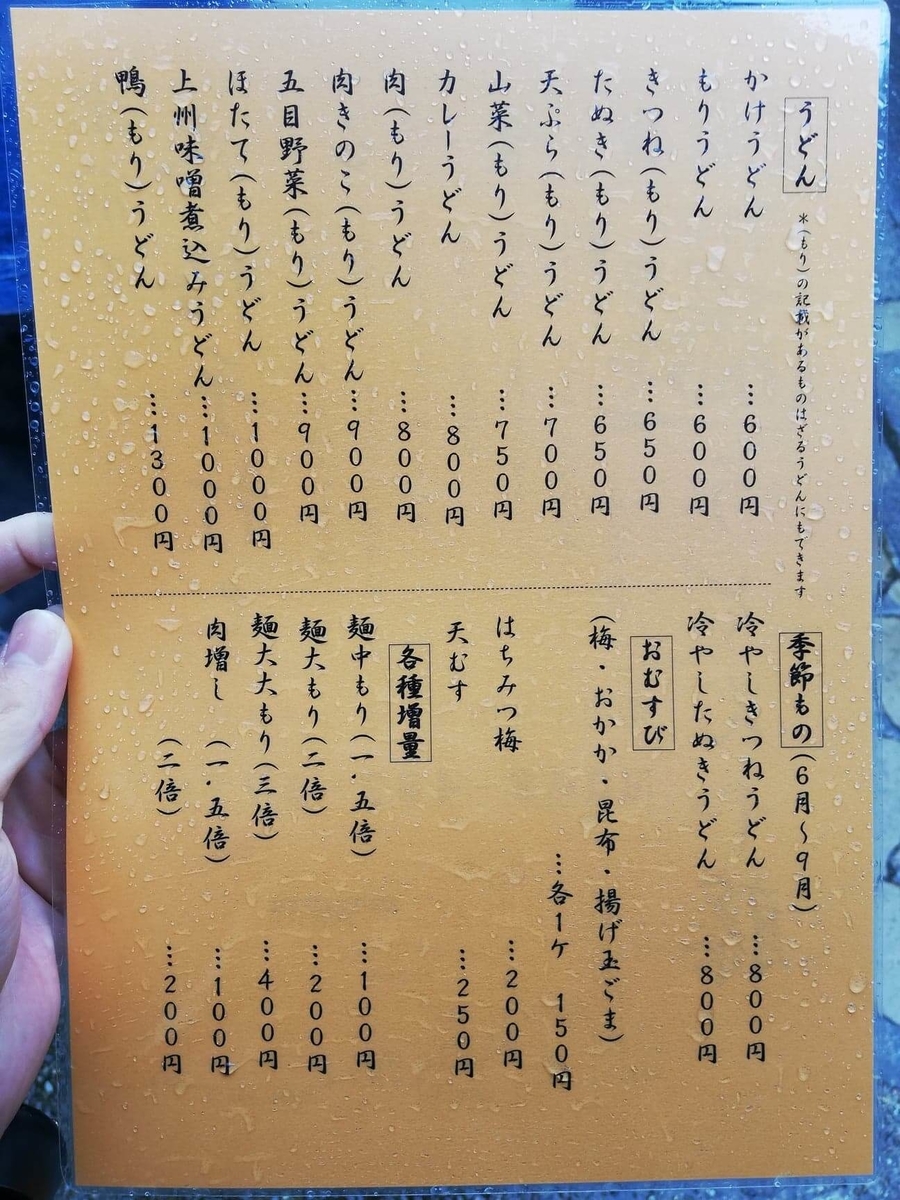 うどん
＊(もり)の記載があるものはざるうどんにもできます
かけうどん …600円
もりうどん …600円
きつね(もり)うどん …650円
たぬき(もり)うどん …650円
天ぷら(もり)うどん …700円
山菜(もり)うどん …750円
カレーうどん …800円
肉(もり)うどん …800円
肉きのこ(もり)うどん …900円
五目野菜(もり)うどん …900円
ほたて(もり)うどん …1000円
上州味噌煮込みうどん …1000円
鴨(もり)うどん …1300円
季節もの(6月〜9月)
冷やしきつねうどん …800円
冷やしたぬきうどん …800円
おむすび
(梅・おかか・昆布・揚げ玉ごま)
…各1ケ 150円
はちみつ梅 …200円
天むす …250円
各種増量
麺中もり(一.五倍) …100円
麺大もり(二倍) …200円
麺大大もり(三倍) …400円
肉増し (一.五倍) …100円
(二倍) …200円